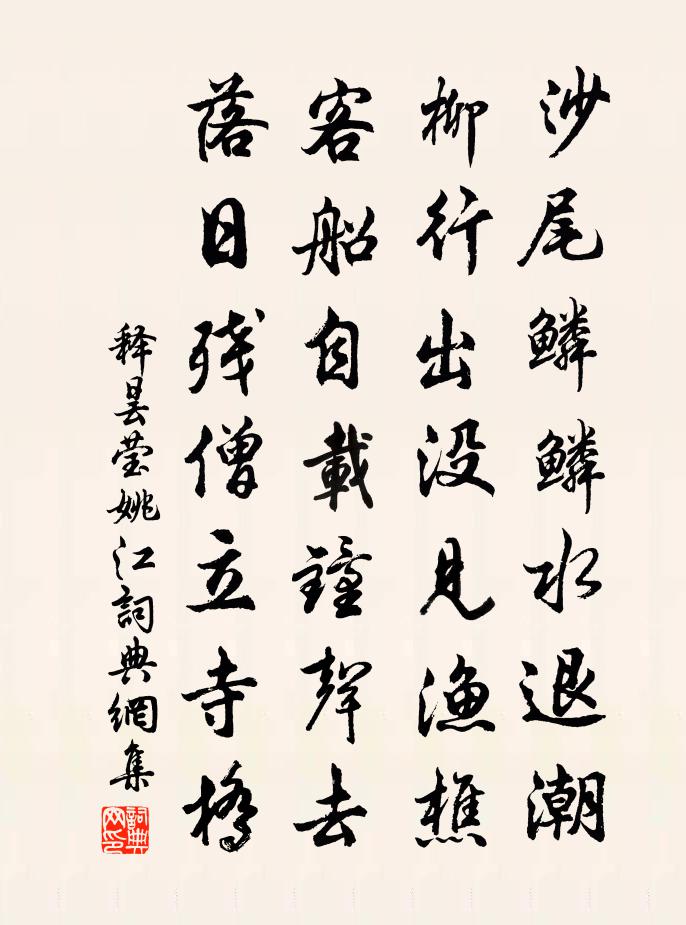 沙尾鱗鱗水退潮
柳行出没見漁樵
客船自載鐘聲去
落日殘僧立寺橋
释曇莹姚江詞典網集
詞典网印